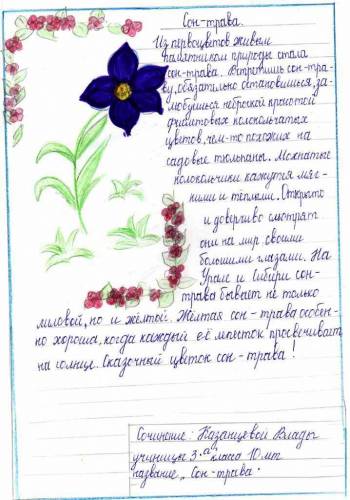 Сон-трава.
Из первоцветов живым
памятником природы стала
сон-трава. Встретишь сон-тра-
ву, обязательно остановишься, за-
любуешься неброской красотой
фиолетовых колокольчатых
цветов, чем-то похожих на
садовые тюльпаны. Мохнатые
колокольчики кажутся мяг-
кими и тёплыми. Открыто
и доверчиво смотрят
они на мир своими
большими глазами. На
Урале и Сибири сон-
трава бывает не только
лиловой, но и жёлтой. Жёлтая сон-трава особен-
но хороша, когда каждый её лепесток просвечивает
на солнце. Сказочный цветок сон-трава!
Сочинение: Казанцевой Влады
ученицы 3 "а" класса 10 лет
название „Сон-трава"